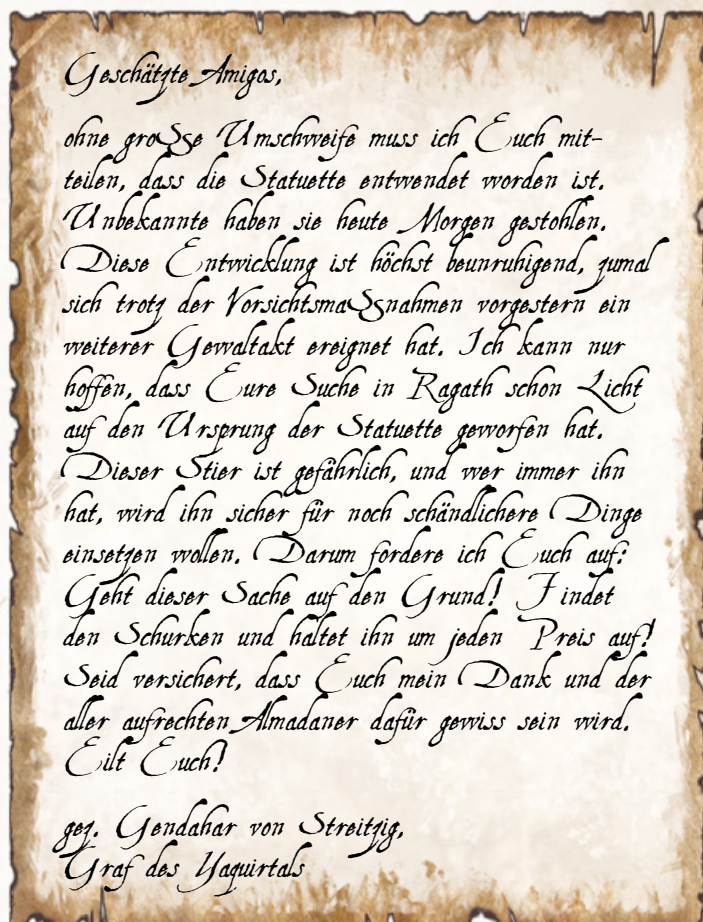 Geschätzte Amigos,
ohne große Umschweife muss ich Euch mit-
teilen, dass die Statuette entwendet worden ist.
Unbekannte haben sie heute Morgen gestohlen.
Diese Entwicklung ist höchst beunruhigend, zumal
sich trotz der Vorsichtsmaßnahmen vorgestern ein
weiterer Gewaltakt ereignet hat. Ich kann nur
hoffen, dass Eure Suche in Ragath schon Licht
auf den Ursprung der Statuette geworfen hat.
Dieser Stier ist gefährlich, und wer immer ihn
hat, wird ihn sicher für noch schändlichere Dinge
einsetzen wollen. Darum fordere ich Euch auf:
Geht dieser Sache auf den Grund! Findet
den Schurken und haltet ihn um jeden Preis auf!
Seid versichert, dass Euch mein Dank und der
aller aufrechten Almadaner dafür gewiss sein wird.
Eilt Euch!
gez. Gendahar von Streitzig,
Graf des Yaquirtals